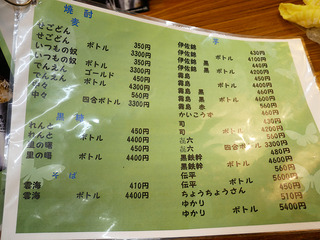 焼酎
麦
せごどん 350円
せごどん ボトル 3300円
いつもの奴 350円
いつもの奴 ボトル 3300円
でんえん ゴールド 450円
でんえん ボトル 4300円
中々 560円
中々 四合ボトル 3300円
黒糖
れんと 450円
れんと ボトル 4400円
里の曙 450円
里の曙 ボトル 4400円
そば
雲海 410円
雲海 ボトル 4400円
芋
伊佐錦 430円
伊佐錦 ボトル 4100円
伊佐錦 黒
伊佐錦 黒 ボトル
霧島
霧島 ボトル
霧島 黒
霧島 黒 ボトル 4600円
霧島 赤 560円
かいこうず 460円
司 430円
司 ボトル 4200円
六 560円
六 四合ボトル 3300円
黒鉄幹 480円
黒鉄幹 ボトル 4600円
伝平 560円
伝平 ボトル 5600円
ちょうちょうさん 450円
ゆかり 510円
ゆかり ボトル 5400円